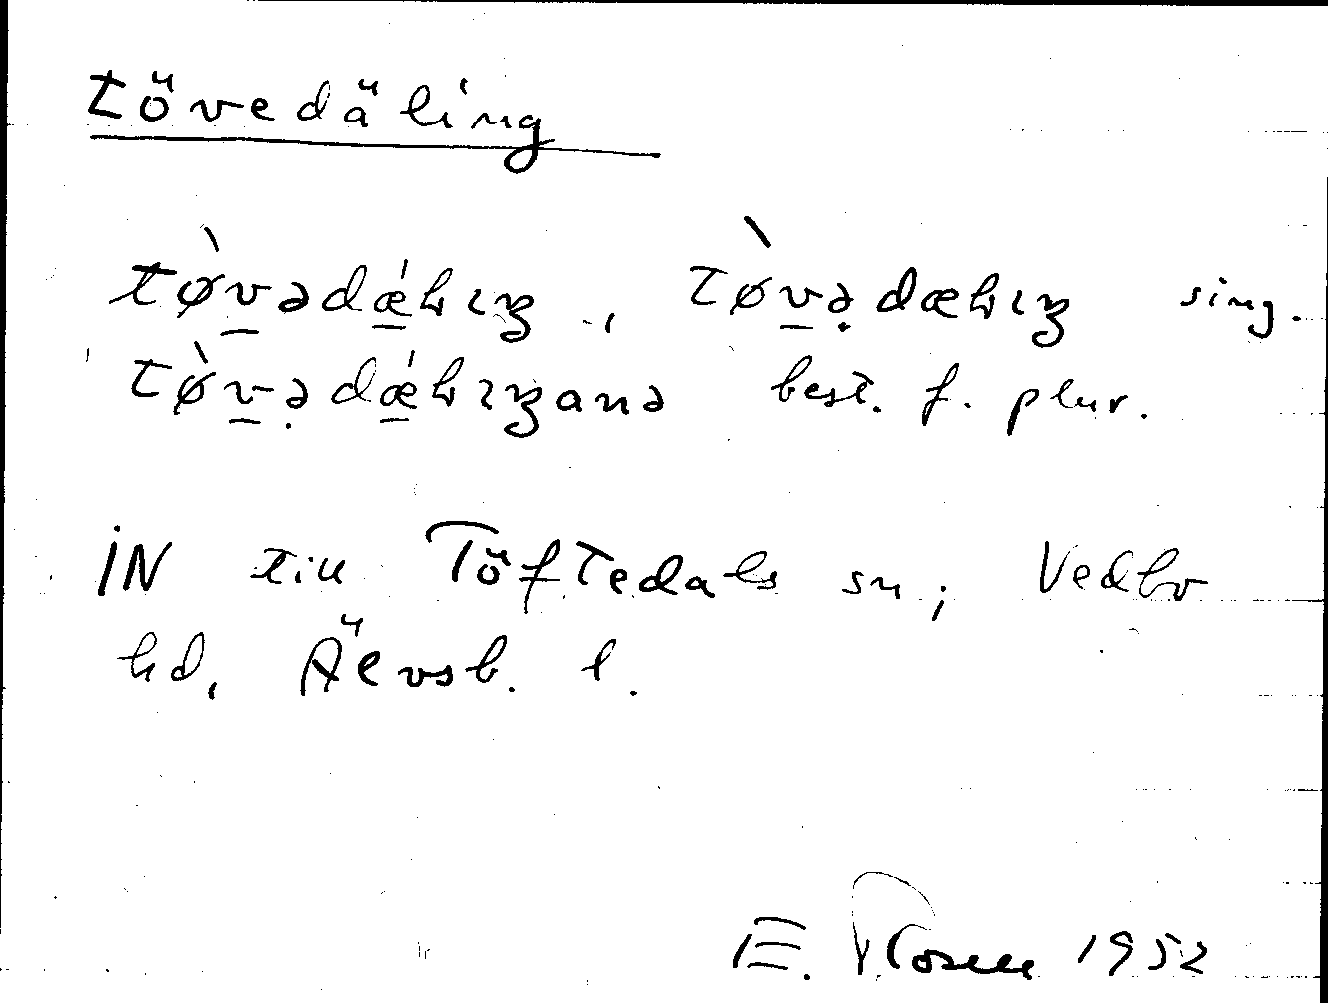 tövedäling
tø̀v̲ədǽ̲lıŋ, tø̀v̲ə̣dælıŋ sing.
tø̀v̲ə̣dǽ̲lıŋanə best. f. plur.
IN till Töftedals sn; Vedbo
hd, Älvsb. l.
E. 1952